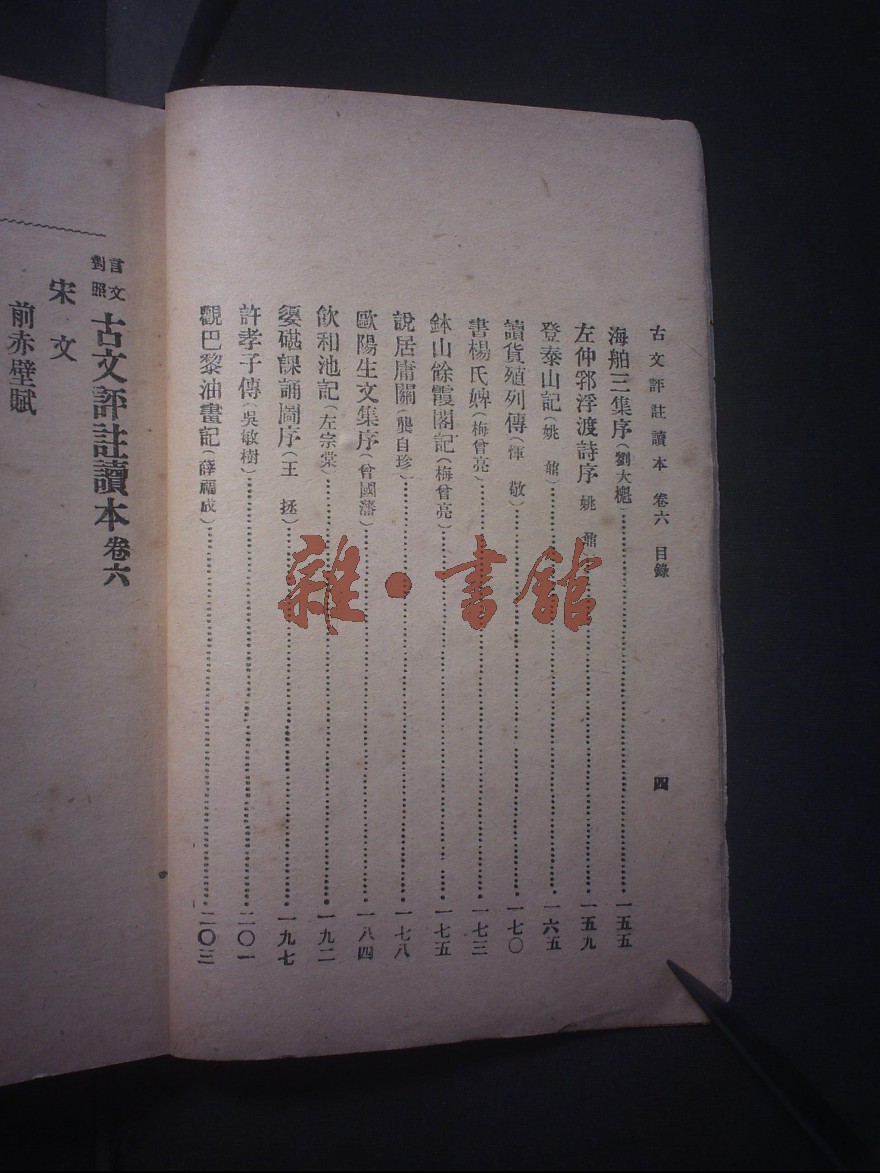 古文評註讀本 卷六 目錄 四
海舶三集序(劉大櫆)一五五
左仲郛浮渡詩序 姚鼐 一五九
登泰山記(姚鼐)一六五
讀貨殖列傳(惲敬)一七〇
書楊氏婢(梅曾亮)一七三
鉢山餘霞閣記(梅曾亮)一七五
說居庸關(龔自珍)一七八
歐陽生文集序(曾國藩)一八四
飲和池記(左宗棠)一九二
媭碪課誦圖序(王拯)一九七
許孝子傳(吳敏樹)二〇一
觀巴黎油畫記(薛福成)二〇三
言文對照 古文評註讀本 卷六
宋文
前赤壁賦
雜·書館